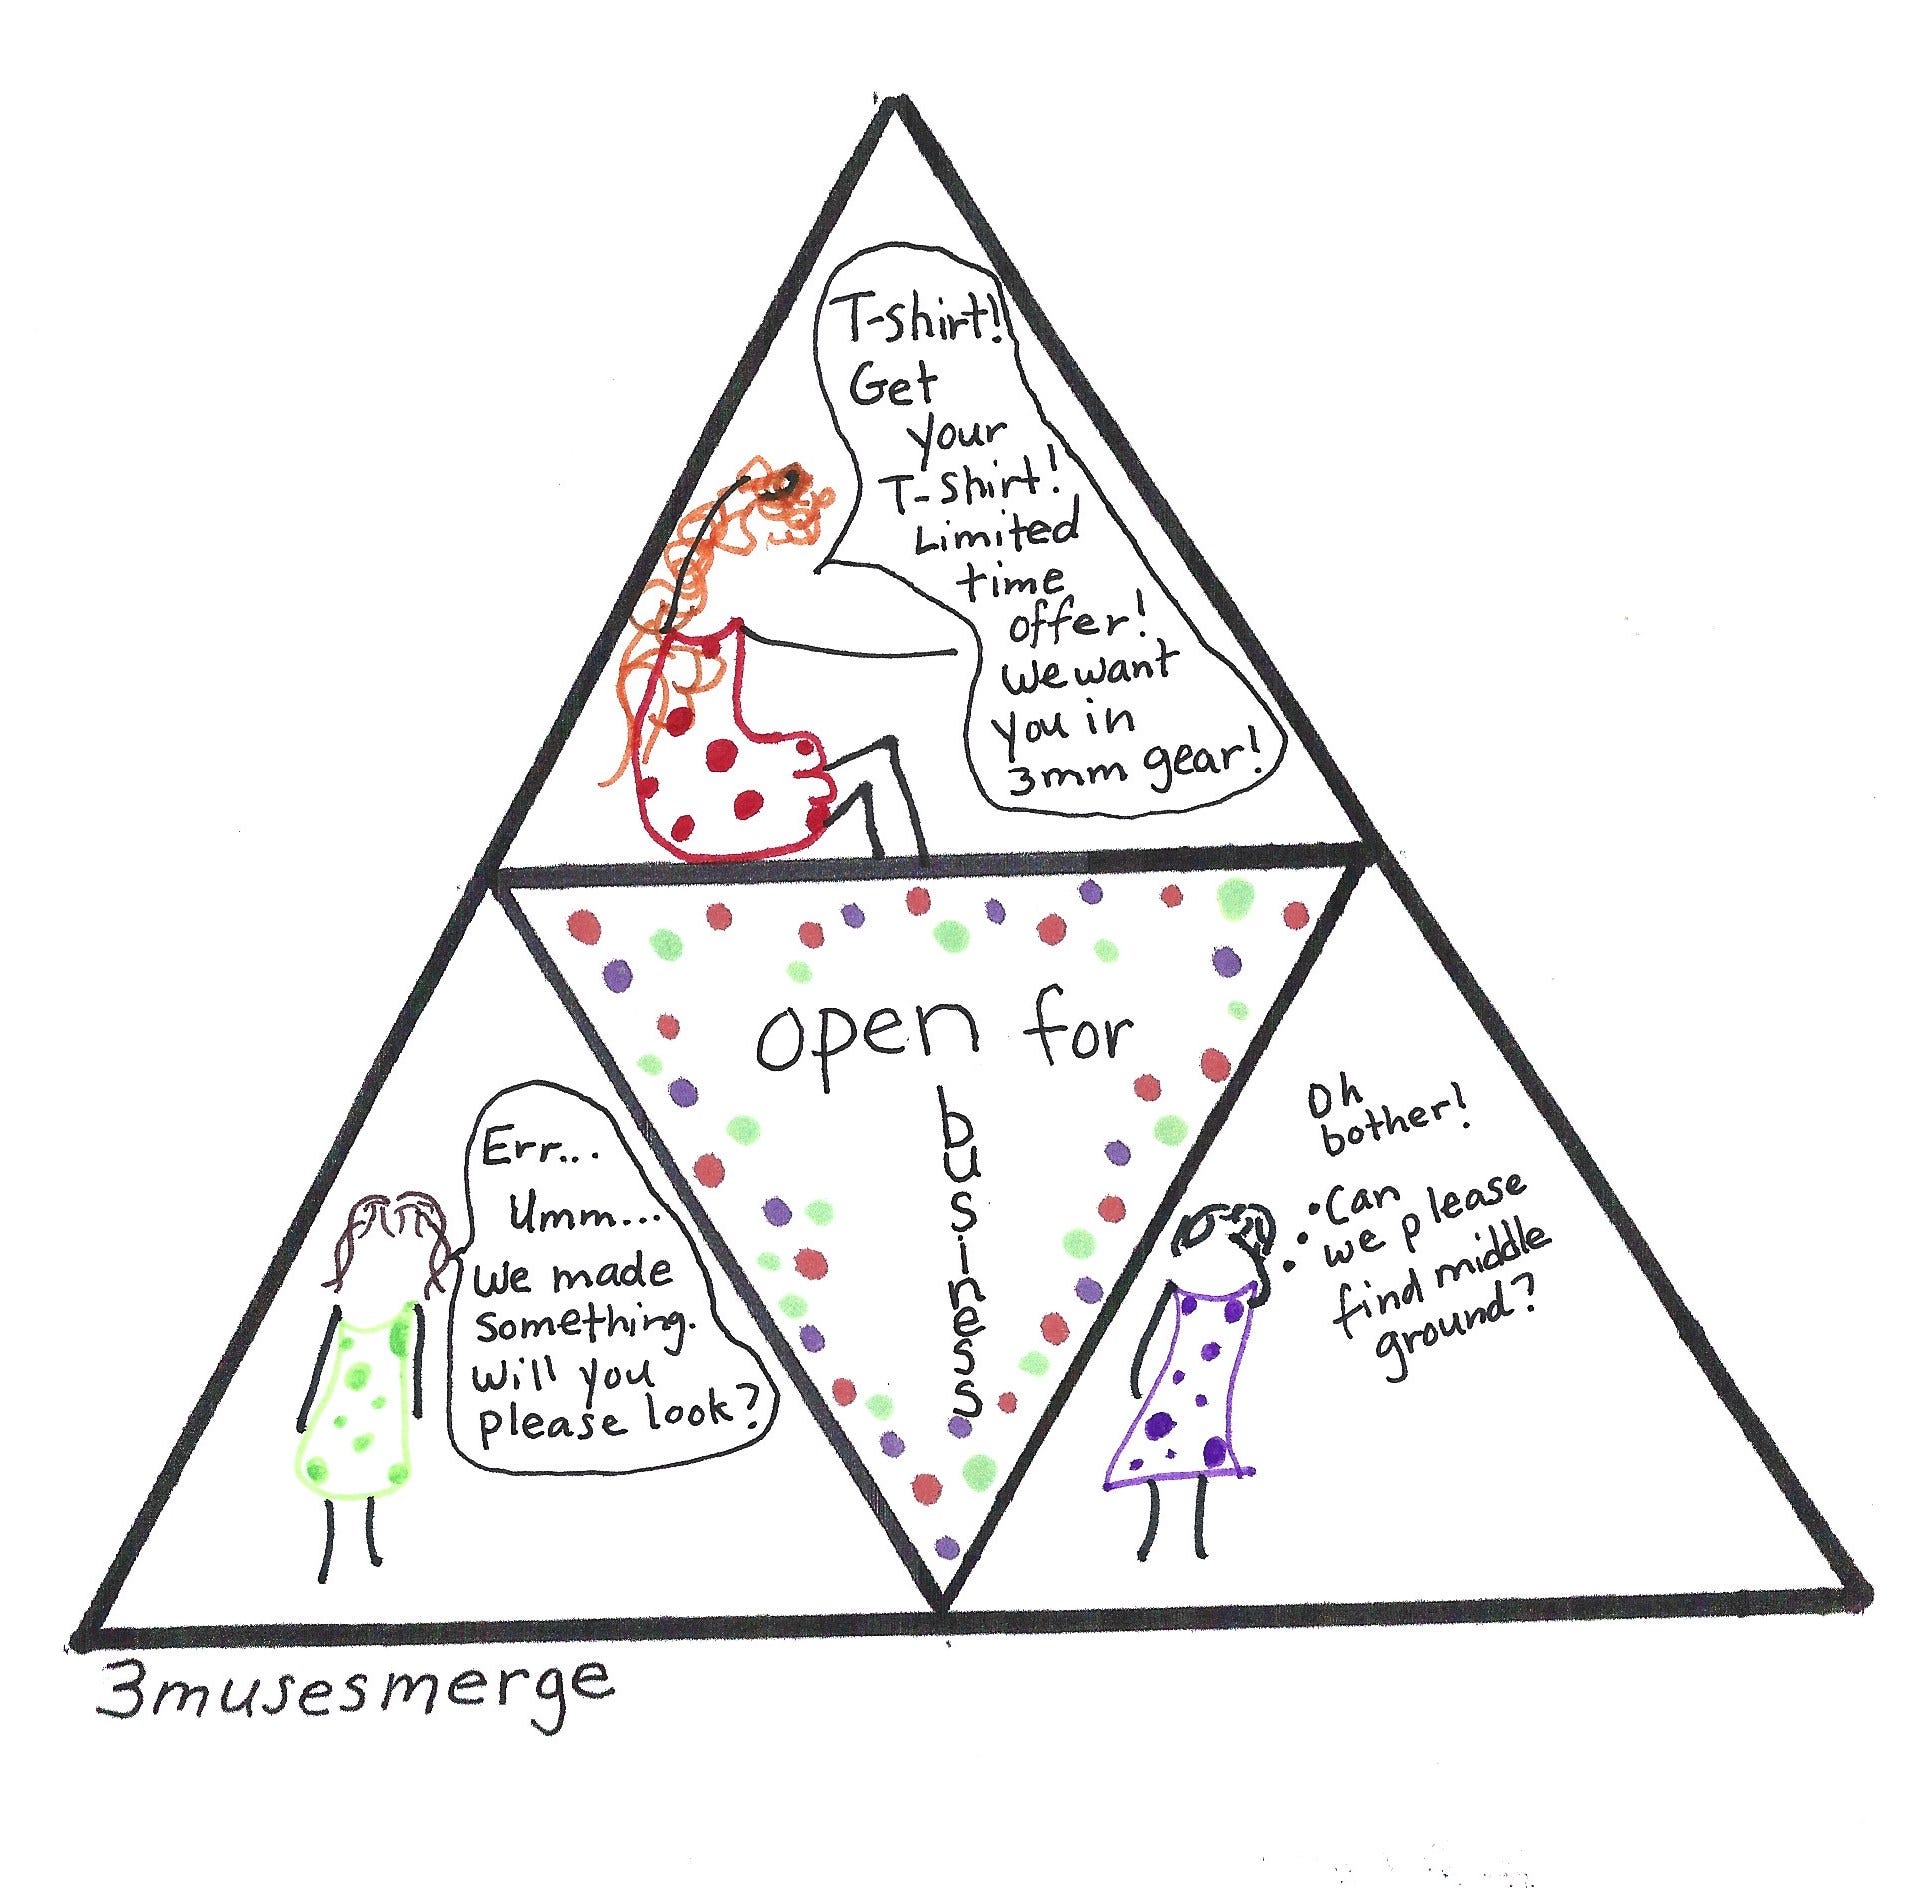 T-shirt!
Get
your
T-shirt!
Limited
time
offer!
We want
you in
3mm gear!
open for
business
Err...
Umm...
We made
something.
Will you
please look?
Oh
bother!
Can
we please
find middle
ground?
3musesmerge